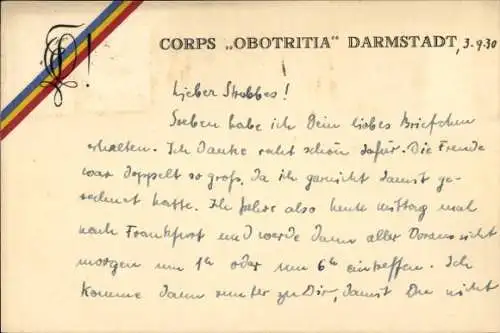 CORPS „OBOTRITIA" DARMSTADT, 3.9.30
Lieber Strobbes!
Soeben habe ich Dein liebes Briefchen
erhalten. Ich danke recht schön dafür. Die Freude
war doppelt so groß, da ich garnicht damit ge-
rechnet hatte. Ich fahre also heute mittag mal
nach Frankfurt und werde dann aller Voraussicht
morgen um 1 oder um 6 eintreffen. Ich
komme dann runter zu Dir, damit Du nicht